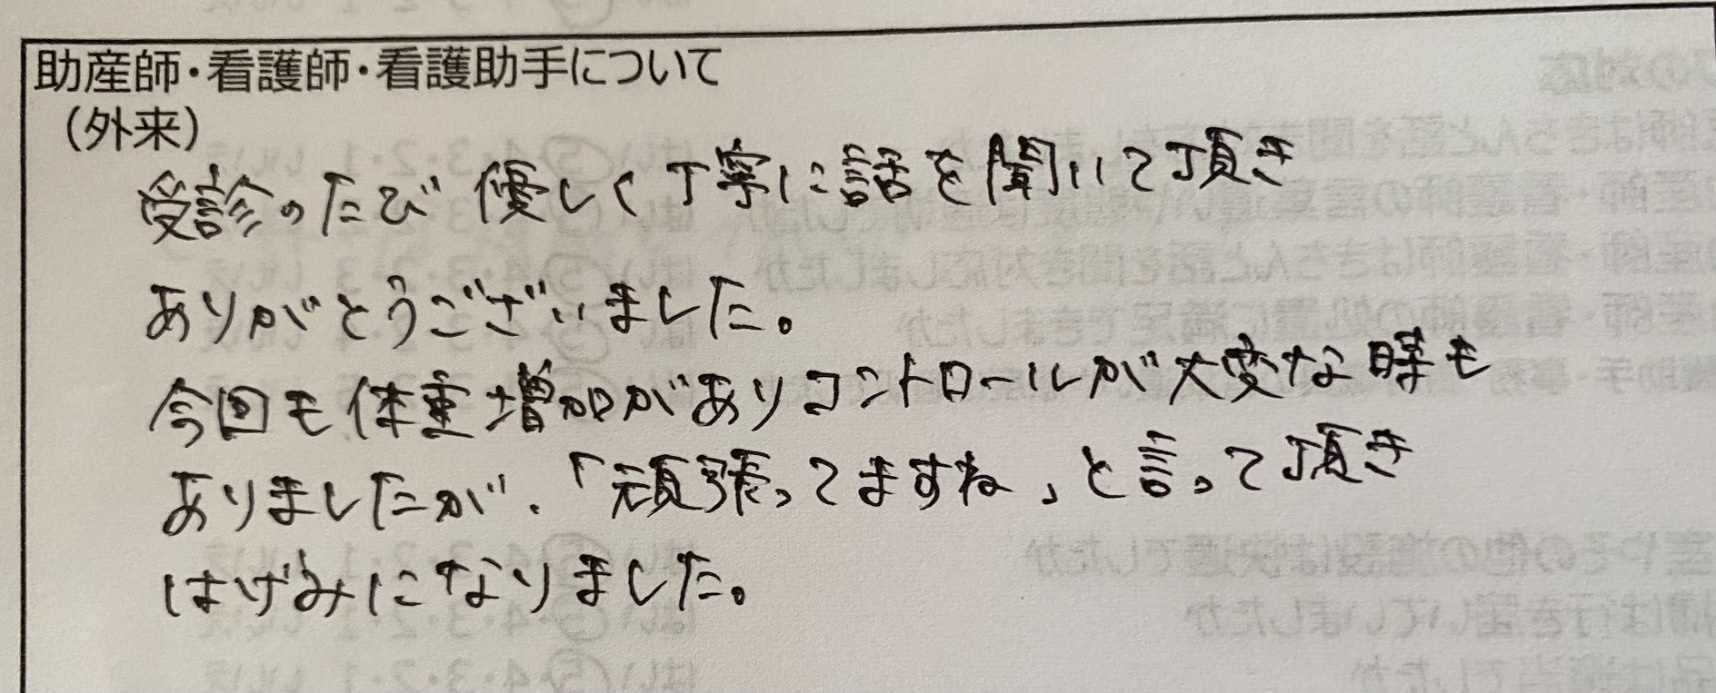 助産師・看護師・看護助手について
（外来）
受診のたび優しく丁寧に話を聞いて頂き
ありがとうございました。
今回も体重増加がありコントロールが大変な時も
ありましたが、「頑張ってますね」と言って頂き
はげみになりました。